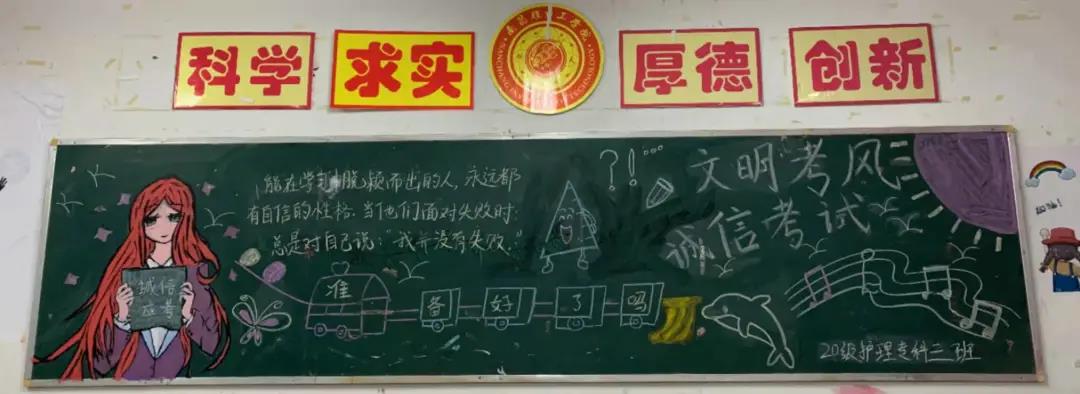 科学
求实
厚德
创新
能在学习中脱颖而出的人,永远都
有自信的性格.当他们面对失败时.
总是对自己说:"我并没有失败."
?!...
文明考风
诚信考试
诚信
应考
准备好了吗
20级护理专科三班